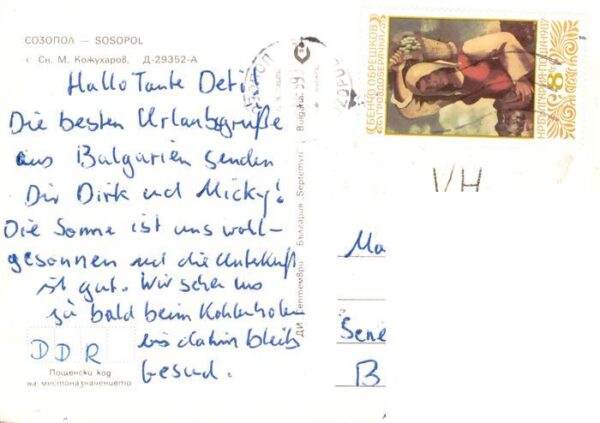 СОЗОПОЛ — SOSOPOL
Сн. М. Кожухаров, Д-29352-А
Hallo Tante Deti!
Die besten Urlaubsgrüße
aus Bulgarien senden
Dir Dirk und Micky!
Die Sonne ist uns wohl-
gesonnen und die Unterkunft
ist gut. Wir sehen uns
ja bald beim Kohlenholen
bis dahin bleib
Gesund.
DDR
Пощенски код
на местоназначението
ДИ Септември България Septemvri Bulgaria
БЕНЧО ОБРЕШКОВ
ГРОЗДОБЕРАЧКА
НР БЪЛГАРИЯ ПОЩА 1987
8
VH
Ma
Sene
B